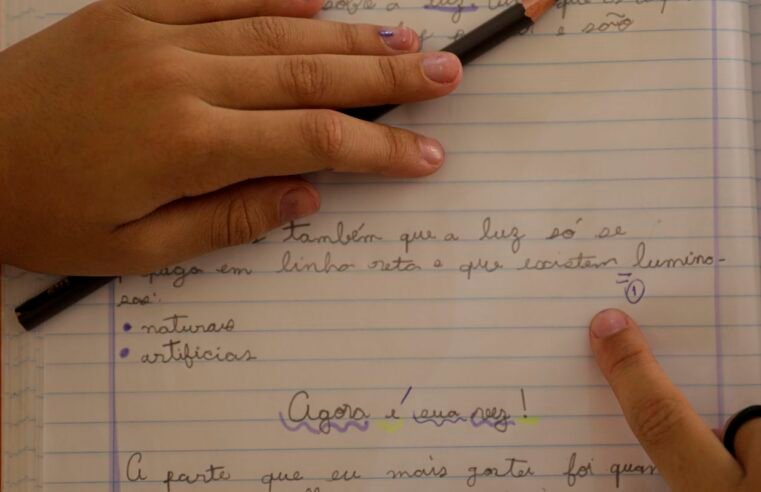 sobre a luz
e sório
também que a luz só se
paga em linha reta e que existem lumino-
sas:
1
• naturais
• artificias
Agora é sua vez!
A parte que eu mais gostei foi quan